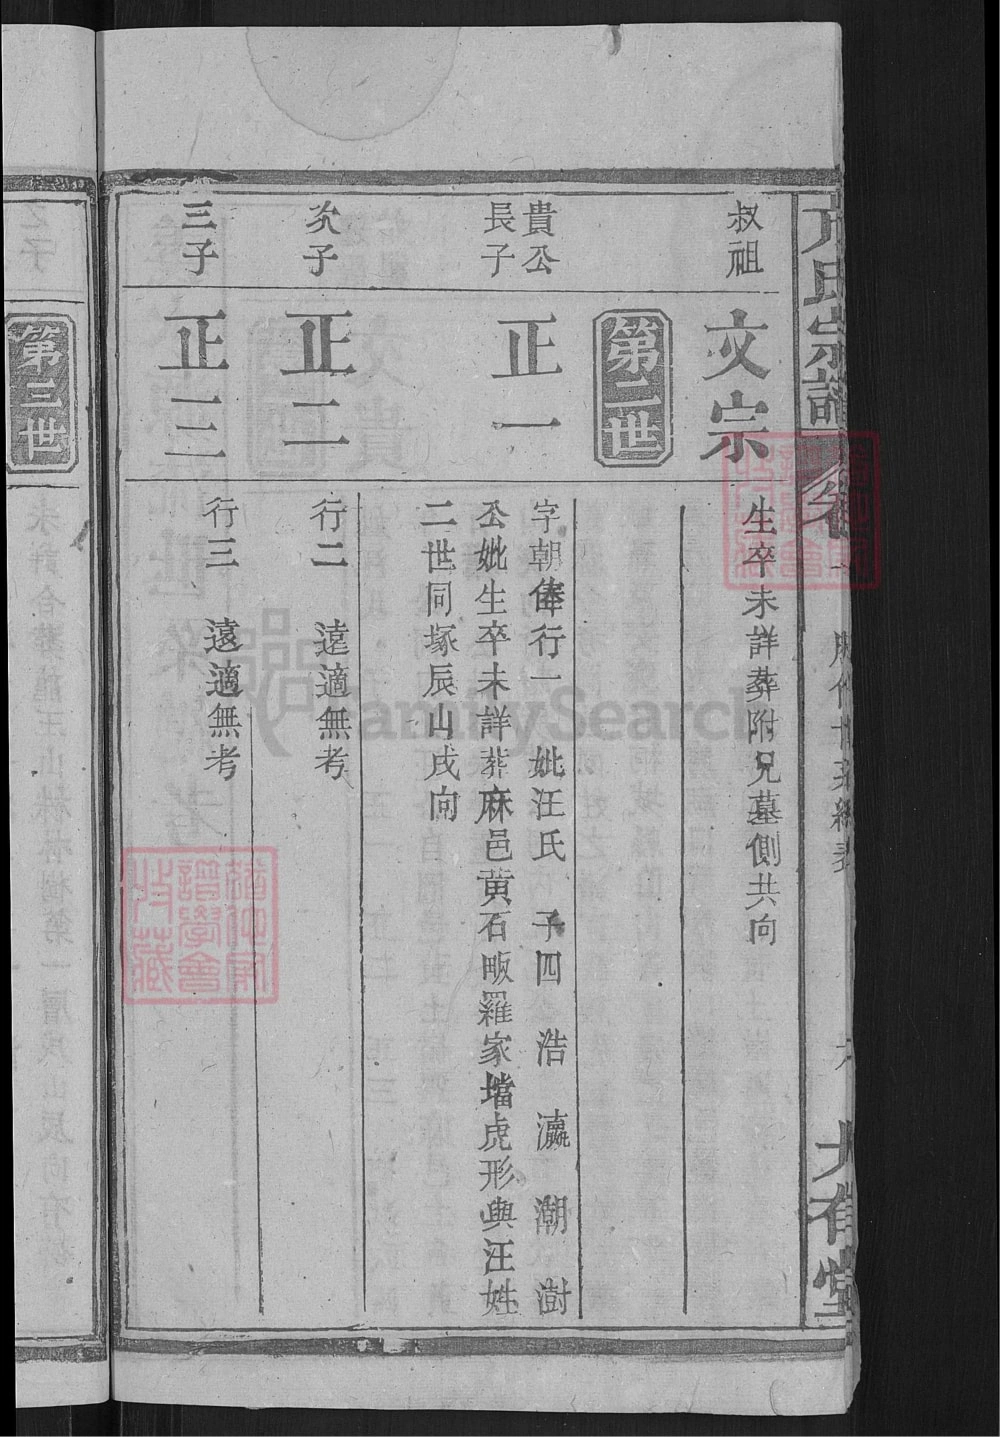 氏宗譜
大有堂
叔祖
文宗
生卒未詳葬附兄墓側共向
第二世
貴公
長子
正一
字朝俸行一 妣汪氏 子四 浩 瀛 潮 澍
公妣生卒未詳葬麻邑黄石畈羅家壋虎形與汪姓
二世同塚辰山戌向
次子
正二
行二 遠適無考
三子
正三
行三 遠適無考
第三世
之子
FamilySearch